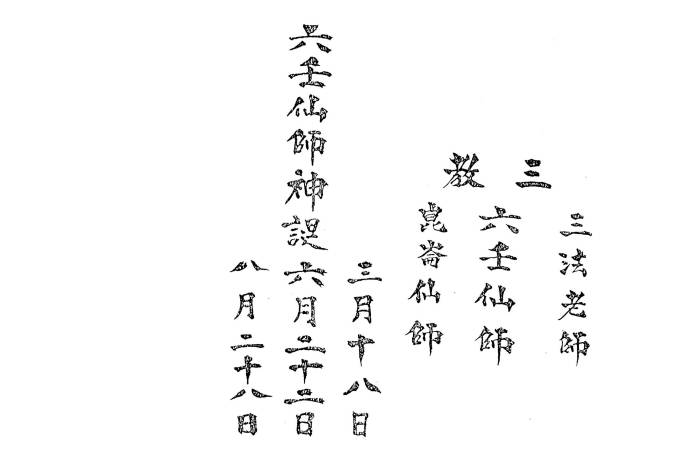 三教
三法老師
六壬仙師
崑崙仙師
三月十八日
六壬仙師神誕六月二十二日
八月二十八日